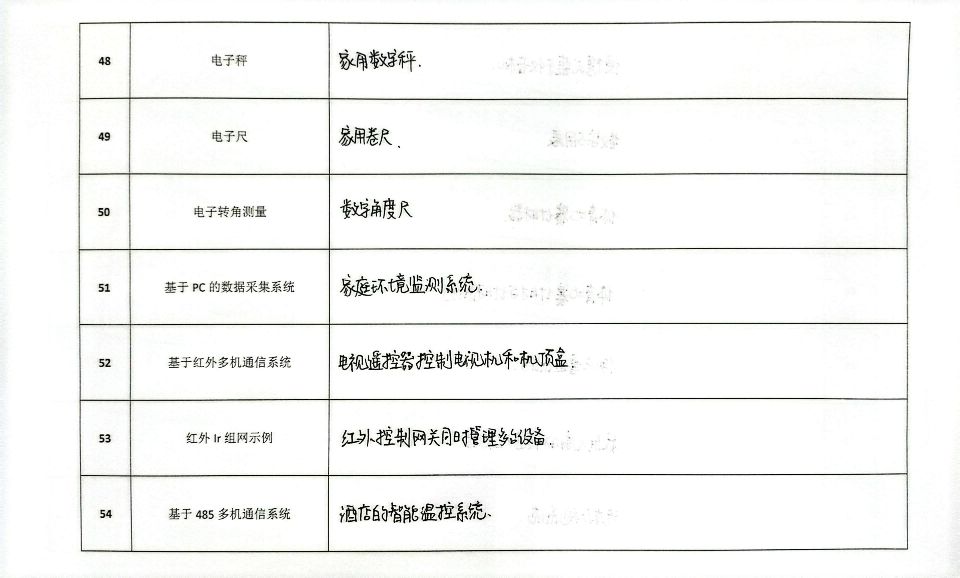 48 电子秤 家用数字秤.
49 电子尺 家用卷尺.
50 电子转角测量 数字角度尺
51 基于 PC 的数据采集系统 家庭环境监测系统.
52 基于红外多机通信系统 电视遥控器控制电视机和机顶盒.
53 红外 Ir 组网示例 红外控制网关同时管理多台设备.
54 基于 485 多机通信系统 酒店的智能温控系统.